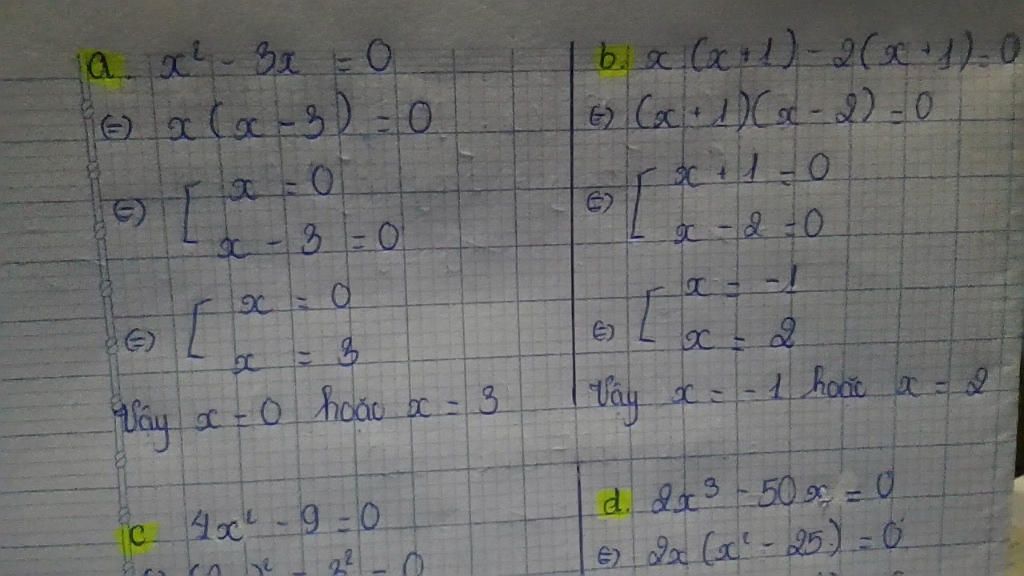 a. x² - 3x = 0
⇔ x(x - 3) = 0
⇔ [ x = 0
x - 3 = 0
⇔ [ x = 0
x = 3
Vậy x = 0 hoặc x = 3
b. x(x+1) - 2(x+1) = 0
⇔ (x+1)(x-2) = 0
⇔ [ x + 1 = 0
x - 2 = 0
⇔ [ x = -1
x = 2
Vậy x = -1 hoặc x = 2
c 4x² - 9 = 0
d. 2x³ - 50x = 0
⇔ 2x(x² - 25) = 0